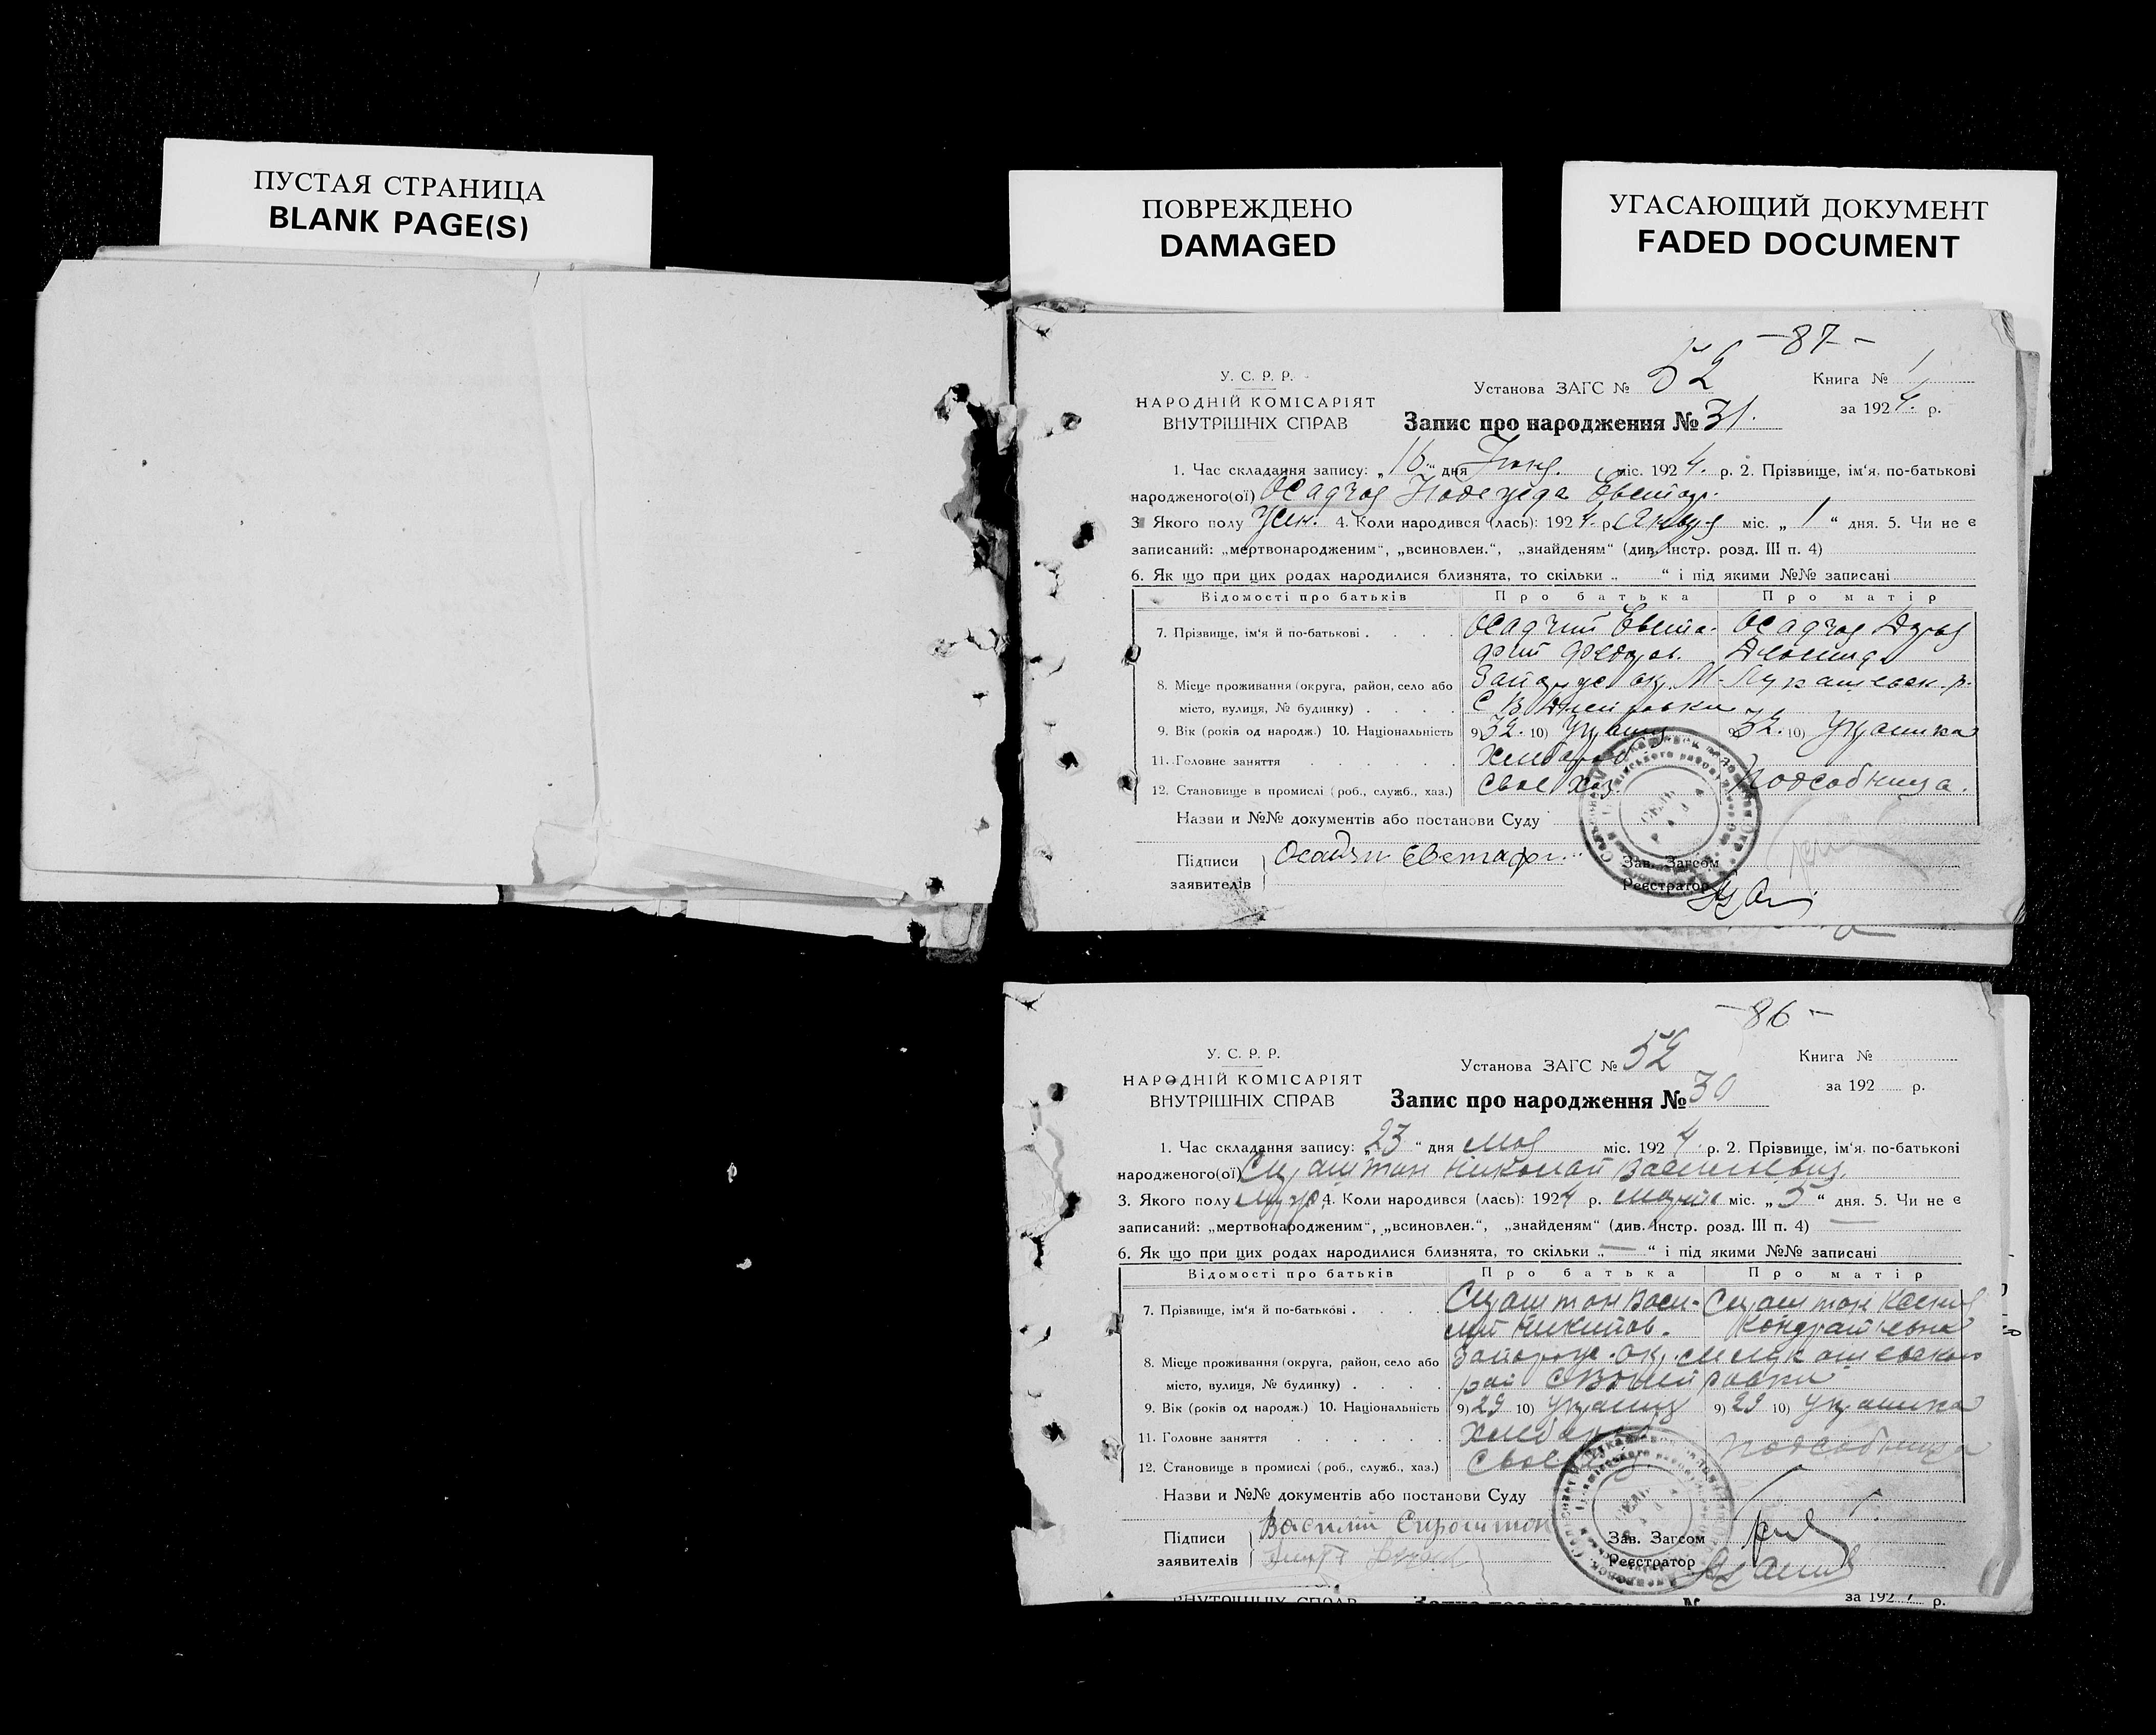 ПУСТАЯ СТРАНИЦА
BLANK PAGE(S)
ПОВРЕЖДЕНО
DAMAGED
УГАСАЮЩИЙ ДОКУМЕНТ
FADED DOCUMENT
- 87 -
У. С. Р. Р.
НАРОДНІЙ КОМІСАРІЯТ
ВНУТРІШНІХ СПРАВ
Установа ЗАГС № 52
Запис про народження № 31.
Книга № 1
за 1924. р.
1. Час складання запису: „16“ дня Июня. міс. 1924. р. 2. Прізвище, ім‘я, по-батькові
народженого(ої) Осадчая Надежда Евстафр.
3 Якого полу жен. 4. Коли народився (лась): 1924. р. Января міс. „1“ дня. 5. Чи не є
записаний: „мертвонародженим“, „всиновлен.“, „знайденям“ (див. Інстр. розд. III п. 4)
6. Як що при цих родах народилися близнята, то скільки „ “ і під якими №№ записані
Відомості про батьків Про батька Про матір
7. Прізвище, ім‘я й по-батькові . . . . Осадчий Евста- Осадчая Дарья
фий Федоров.
8. Місце проживання (округа, район, село або Запорож. ок. М-Лукашевск. р.
місто, вулиця, № будинку) . . . . С В Днепровки
9. Вік (років од народж.) 10. Національність 9) 32. 10) Украинц 9) 32. 10) Украинка
11. Головне заняття . . . . . . Хлебороб
12. Становище в промислі (роб., служб., хаз.) Свое хоз. Подсобница.
Назви и №№ документів або постанови Суду
Підписи
заявителів
Осадчи Евстафи..
Зав. Загсом
Реєстратор
- 86 -
У. С. Р. Р.
НАРОДНІЙ КОМІСАРІЯТ
ВНУТРІШНІХ СПРАВ
Установа ЗАГС № 52
Запис про народження № 30
Книга №
за 192 р.
1. Час складання запису: „23“ дня мая міс. 1924. р. 2. Прізвище, ім‘я, по-батькові
народженого(ої) Сироштан Николай Васильевич.
3. Якого полу мужс. 4. Коли народився (лась): 1924 р. марта міс. „5“ дня. 5. Чи не є
записаний: „мертвонародженим“, „всиновлен.“, „знайденям“ (див. Інстр. розд. III п. 4) —
6. Як що при цих родах народилися близнята, то скільки „—“ і під якими №№ записані
Відомості про батьків Про батька Про матір
7. Прізвище, ім‘я й по-батькові . . . . Сироштан Васи- Сироштан Ксения
лий Никитов. Кондратьевна
8. Місце проживання (округа, район, село або Запорож. ок. м Лукашевского
місто, вулиця, № будинку) . . . . рай С В Днепровки
9. Вік (років од народж.) 10. Національність 9) 29 10) Украинц 9) 29 10) Украинка
11. Головне заняття . . . . . . Хлебороб
12. Становище в промислі (роб., служб., хаз.) Подсобница
Назви и №№ документів або постанови Суду
Підписи
заявителів
Василий Сироштан
Зав. Загсом
Реєстратор
ВНУТРІШНІХ СПРАВ
за 192 р.